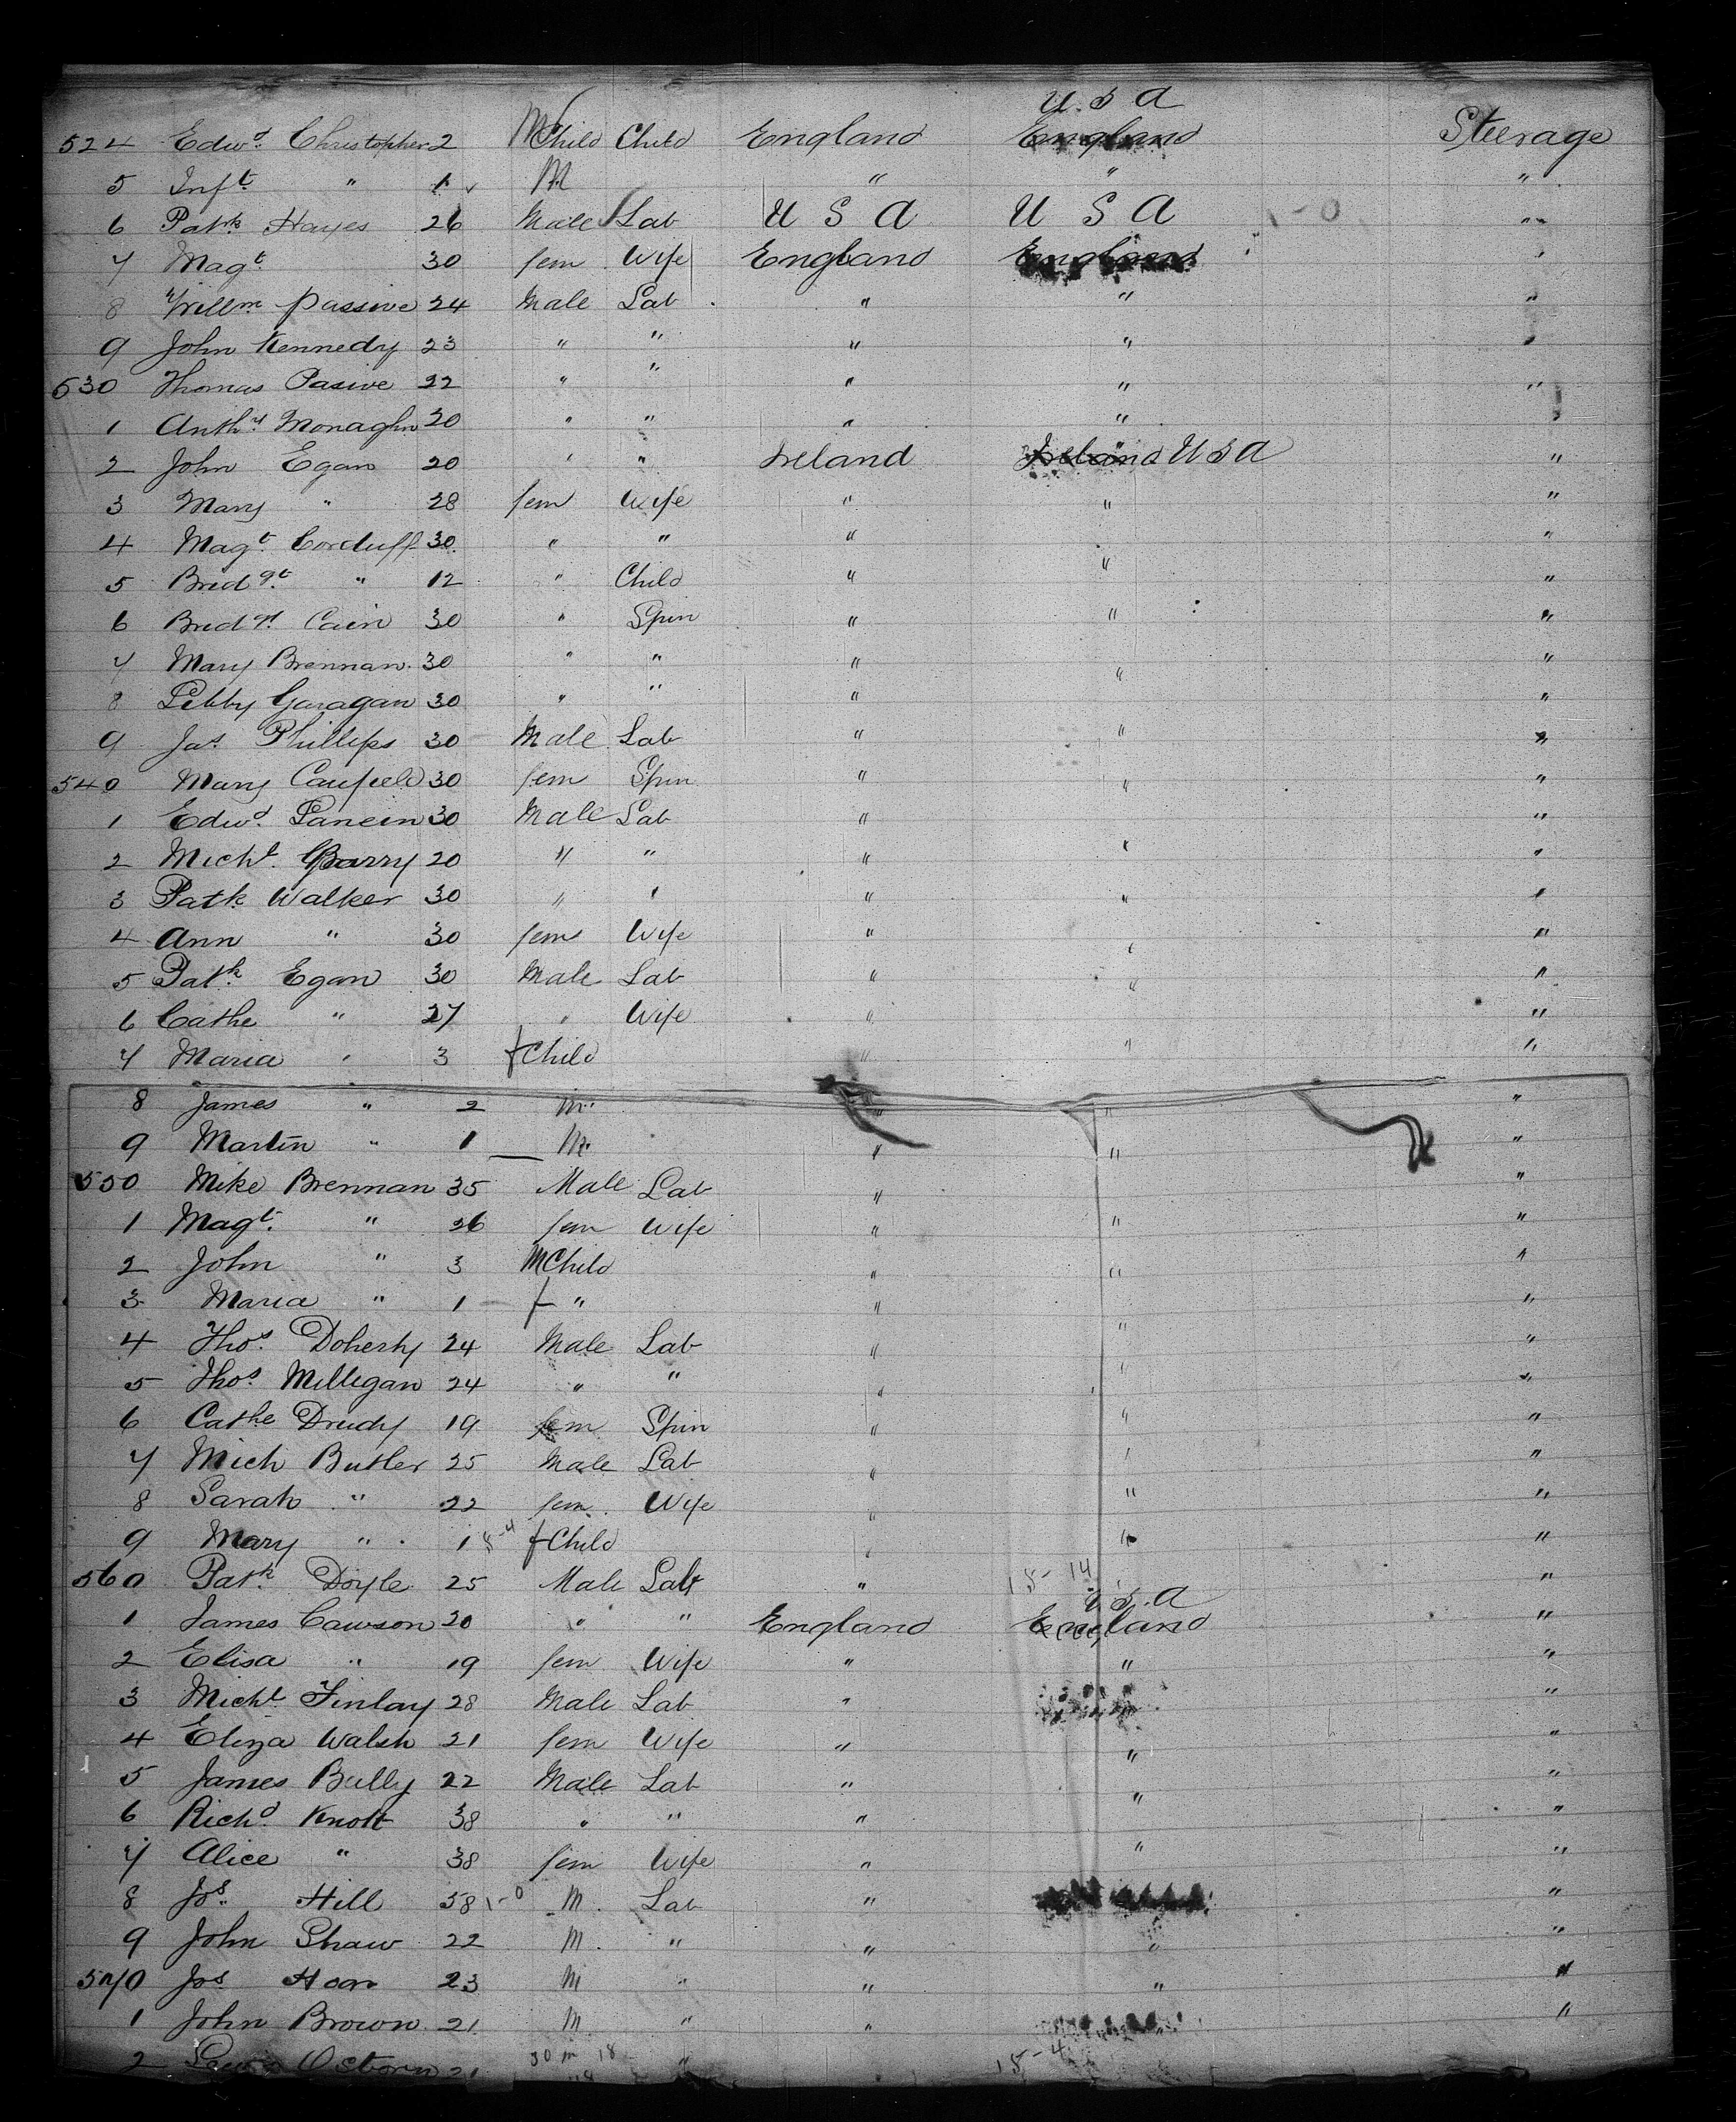 U. S A
524 Edwd. Christopher 2 M Child Child England England Steerage
5 Inft. " 1 M " " "
6 Patk. Hayes 26 Male Lab U S A U S A - 0 "
7 Magt. 30 fem Wife England England
8 Willm Passive 24 Male Lab " " "
9 John Kennedy 23 " " " "
530 Thomas Pasive 22 " " " " "
1 Anthy Monaghn 20 " " " "
2 John Egan 20 " " Ireland Ireland U S A "
3 Mary " 28 fem Wife " " "
4 Magt. Corduff 30 " " " "
5 Bridgt. " 12 " Child " " "
6 Bridgt. Cain 30 " Spin " " "
7 Mary Brennan 30 " " " " "
8 Garagan 30 " " " "
9 Jas. Phillips 30 Male Lab " " "
540 Mary Caufield 30 fem Spin " " "
1 Edwd. 30 Male Lab " "
2 Michl. 20 " " " " "
3 Patk Walker 30 " " " " "
4 Ann " 30 fem Wife " " "
5 Patk. Egan 30 Male Lab " " "
6 Cathe " 27 " Wife " "
7 Maria " 3 f Child " " "
8 James " 2 M " " " "
9 Martin " 1 M " " "
550 Mike Brennan 35 Male Lab " "
1 Magt. " 26 fem Wife " " "
2 John " 3 M Child " " "
3 Maria " 1 f " " "
4 Thos. Doherty 24 Male Lab " " "
5 Thos. Milligan 24 " " " " "
6 Cathe Drudy 19 fem Spin " " "
7 Mich Butler 25 Male Lab " " "
8 Sarah " 22 fem Wife " " "
9 Mary " 1 f Child " " "
560 Patk. Doyle 25 Male Lab " "
U.S.A
1 James Cawson 20 " " England England "
2 Elisa " 19 fem Wife " " "
3 Michl. Finlay 28 Male Lab " "
4 Eliza Walsh 21 fem Wife " " "
5 James Bully 22 Male Lab " " "
6 Richd. Knott 38 " " " " "
7 Alice " 38 fem Wife " " "
8 Jos. Hill 58 M. Lab " "
9 John Shaw 22 M. " " " "
570 Jos 23 M " " " "
1 John Brown 21 M " " "
2 Osborn 21 "